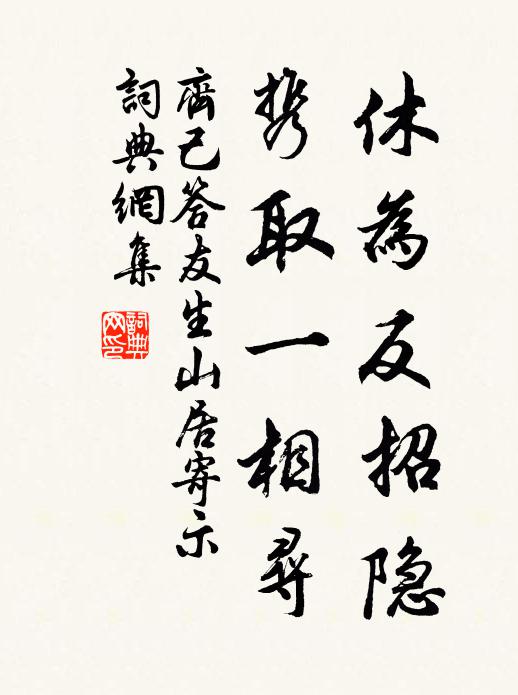 休為反招隐
携取一相尋
齊己答友生山居寄示
詞典網集
詞典
网印